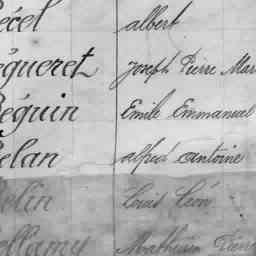 écel albert
égueret Joseph Pierre Mar
Béguin Emile Emmanuel
Belan alfred antoine
Belin Louis Léon
ellamy Mathurin Pierre